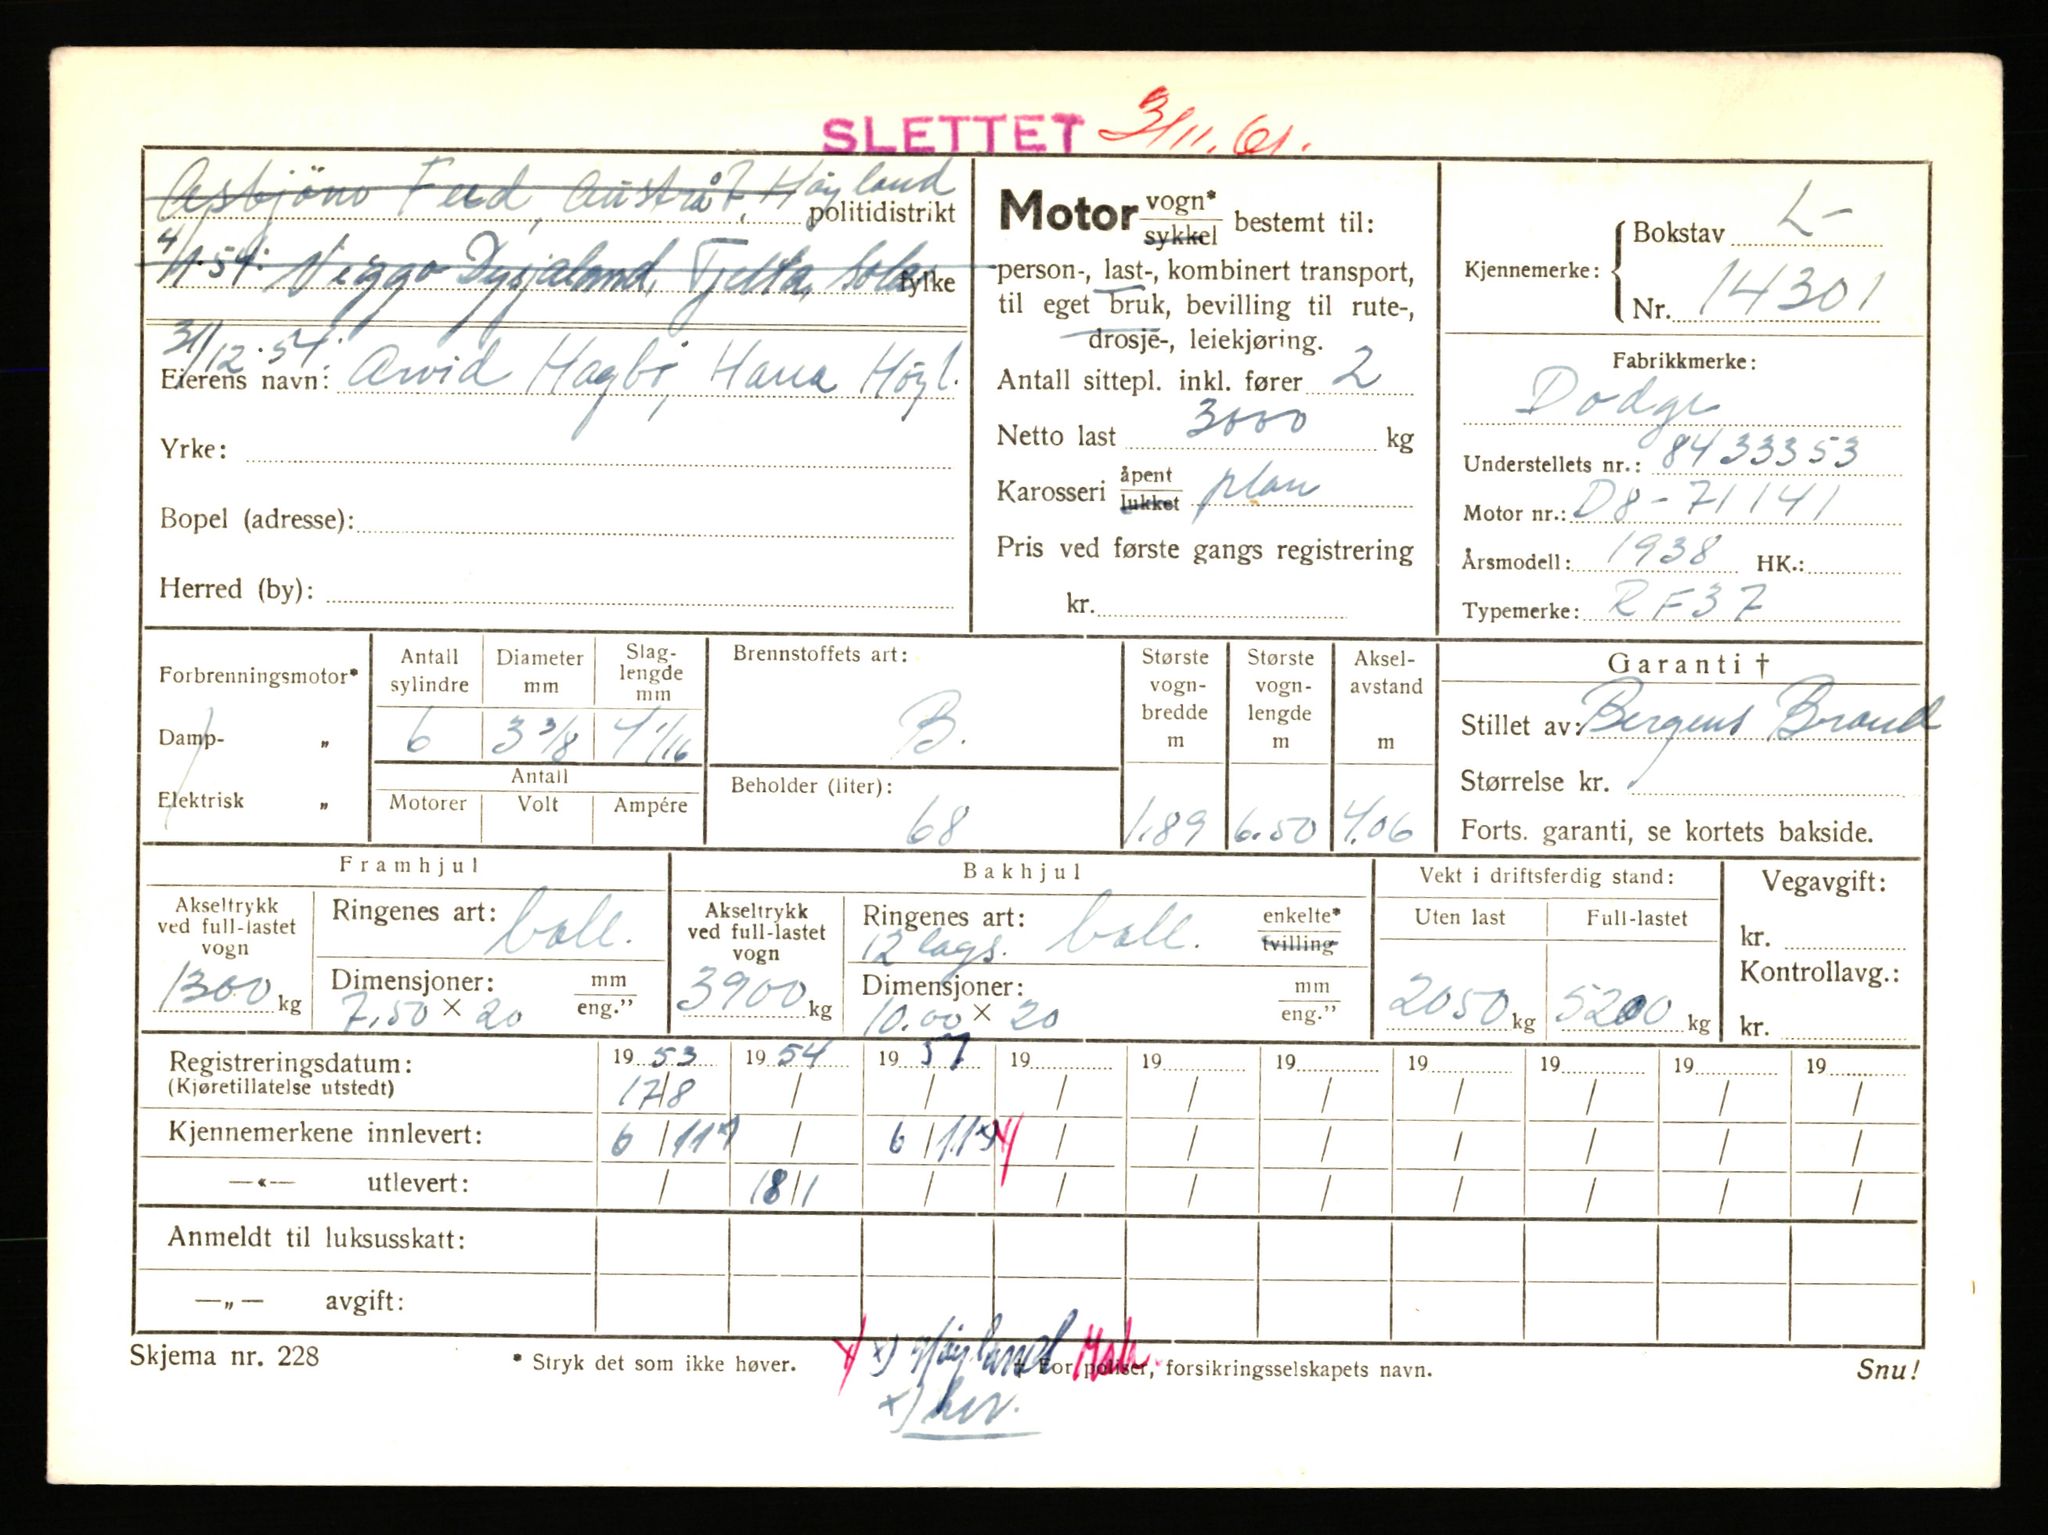 SLETTET 3/11.61.
Asbjörn Feed, Austrått, Höyland
politidistrikt
4/1.54. Viggo Dysjaland, Tjelta, Sola
fylke
31/12.54.
Eierens navn: Arvid Hagbö, Hana Höyl.
Yrke:
Bopel (adresse):
Herred (by):
Motor vogn* / sykkel bestemt til:
person-, last-, kombinert transport,
til eget bruk, bevilling til rute-,
drosje-, leiekjøring.
Antall sittepl. inkl. fører 2
Netto last 3000 kg
Karosseri åpent / lukket plan
Pris ved første gangs registrering
kr.
Kjennemerke: { Bokstav L-
Nr. 14301
Fabrikkmerke:
Dodge
Understellets nr.: 8433353
Motor nr.: D8-71141
Årsmodell: 1938 HK.:
Typemerke: RF37
Forbrenningsmotor*
Damp- „
Elektrisk „
Antall sylindre 6
Diameter mm 3 3/8
Slaglengde mm 4 1/16
Antall
Motorer Volt Ampére
Brennstoffets art:
B.
Beholder (liter):
68
Største vognbredde m 1.89
Største vognlengde m 6.50
Akselavstand m 4.06
Garanti †
Stillet av: Bergens Brand
Størrelse kr.
Forts. garanti, se kortets bakside.
Framhjul
Akseltrykk ved full-lastet vogn
1300 kg
Ringenes art: ball.
Dimensjoner: mm / eng."
7.50 × 20
Bakhjul
Akseltrykk ved full-lastet vogn
3900 kg
Ringenes art: enkelte* / tvilling
12 lags. ball.
Dimensjoner: mm / eng."
10.00 × 20
Vekt i driftsferdig stand:
Uten last Full-lastet
2050 kg 5200 kg
Vegavgift:
kr.
Kontrollavg.:
kr.
Registreringsdatum: 19 53 19 54 19 57 19 19 19 19 19 19 19
(Kjøretillatelse utstedt) 17/8 / / / / / / / / /
Kjennemerkene innlevert: 6/11 x) / 6/11 x) / / / / / / /
—«— utlevert: / 18/1 / / / / / / / /
Anmeldt til luksusskatt:
—„— avgift:
Skjema nr. 228
* Stryk det som ikke høver.
x) Höyland
† For poliser, forsikringsselskapets navn.
Snu!
x) her.